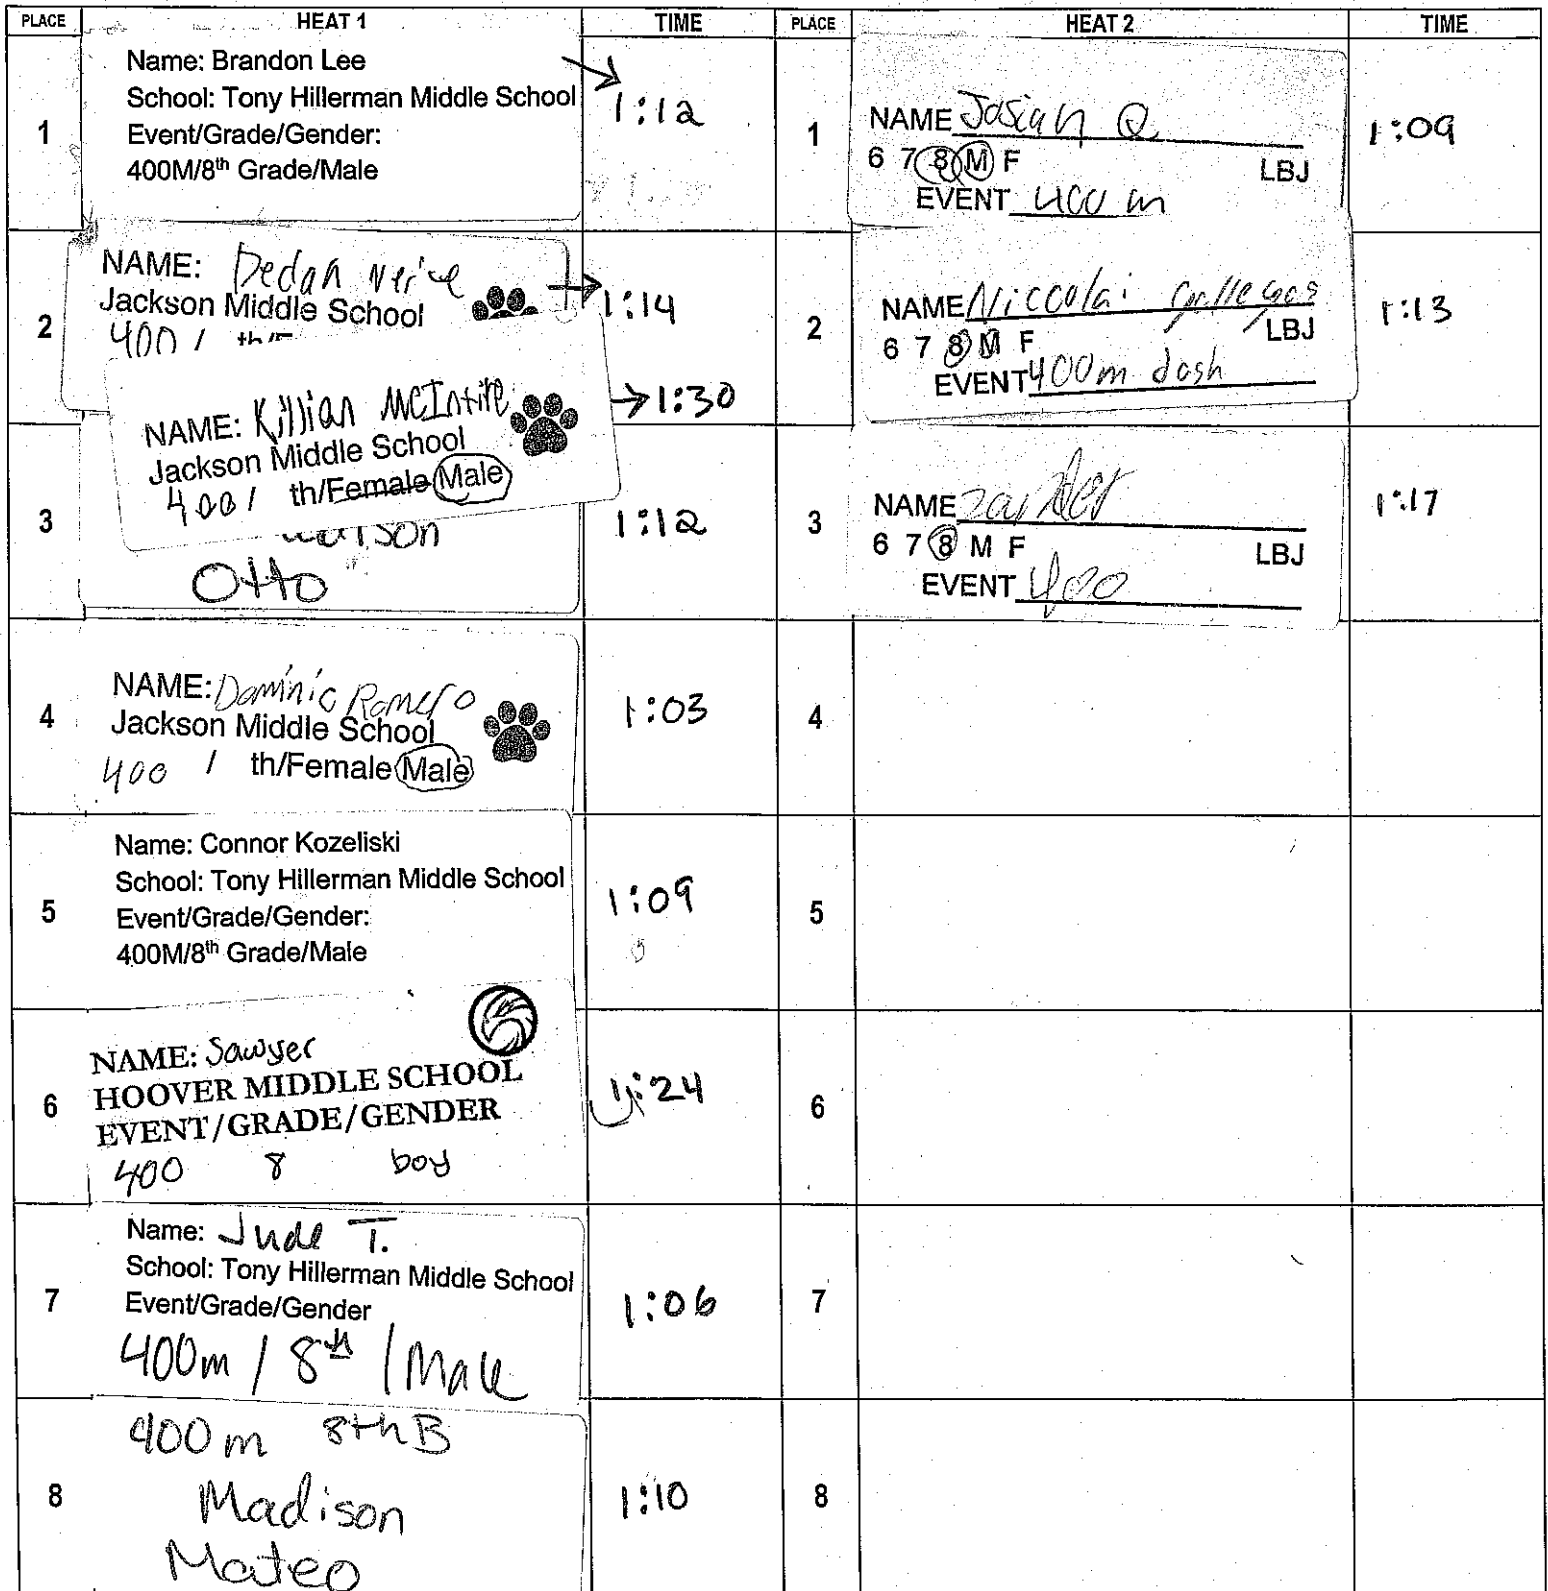 PLACE HEAT 1 TIME PLACE HEAT 2 TIME
1
Name: Brandon Lee
School: Tony Hillerman Middle School
Event/Grade/Gender:
400M/8th Grade/Male
1:12
1
NAME Josiah Q
6 7 8 M F LBJ
EVENT 400 m
1:09
2
NAME: Dedan
Jackson Middle School
400 /
1:14
NAME: Killian McIntire
Jackson Middle School
400 / th/Female Male
1:30
2
NAME Niccolai Gallegos
6 7 8 M F LBJ
EVENT 400m dash
1:13
3
Otto
1:12
3
NAME
6 7 8 M F LBJ
EVENT 400
1:17
4
NAME: Dominic Romero
Jackson Middle School
400 / th/Female Male
1:03
4
5
Name: Connor Kozeliski
School: Tony Hillerman Middle School
Event/Grade/Gender:
400M/8th Grade/Male
1:09
5
6
NAME: Sawyer
HOOVER MIDDLE SCHOOL
EVENT/GRADE/GENDER
400 8 boy
1:24
6
7
Name: Jude T.
School: Tony Hillerman Middle School
Event/Grade/Gender
400m / 8th / Male
1:06
7
8
400m 8th B
Madison
Mateo
1:10
8